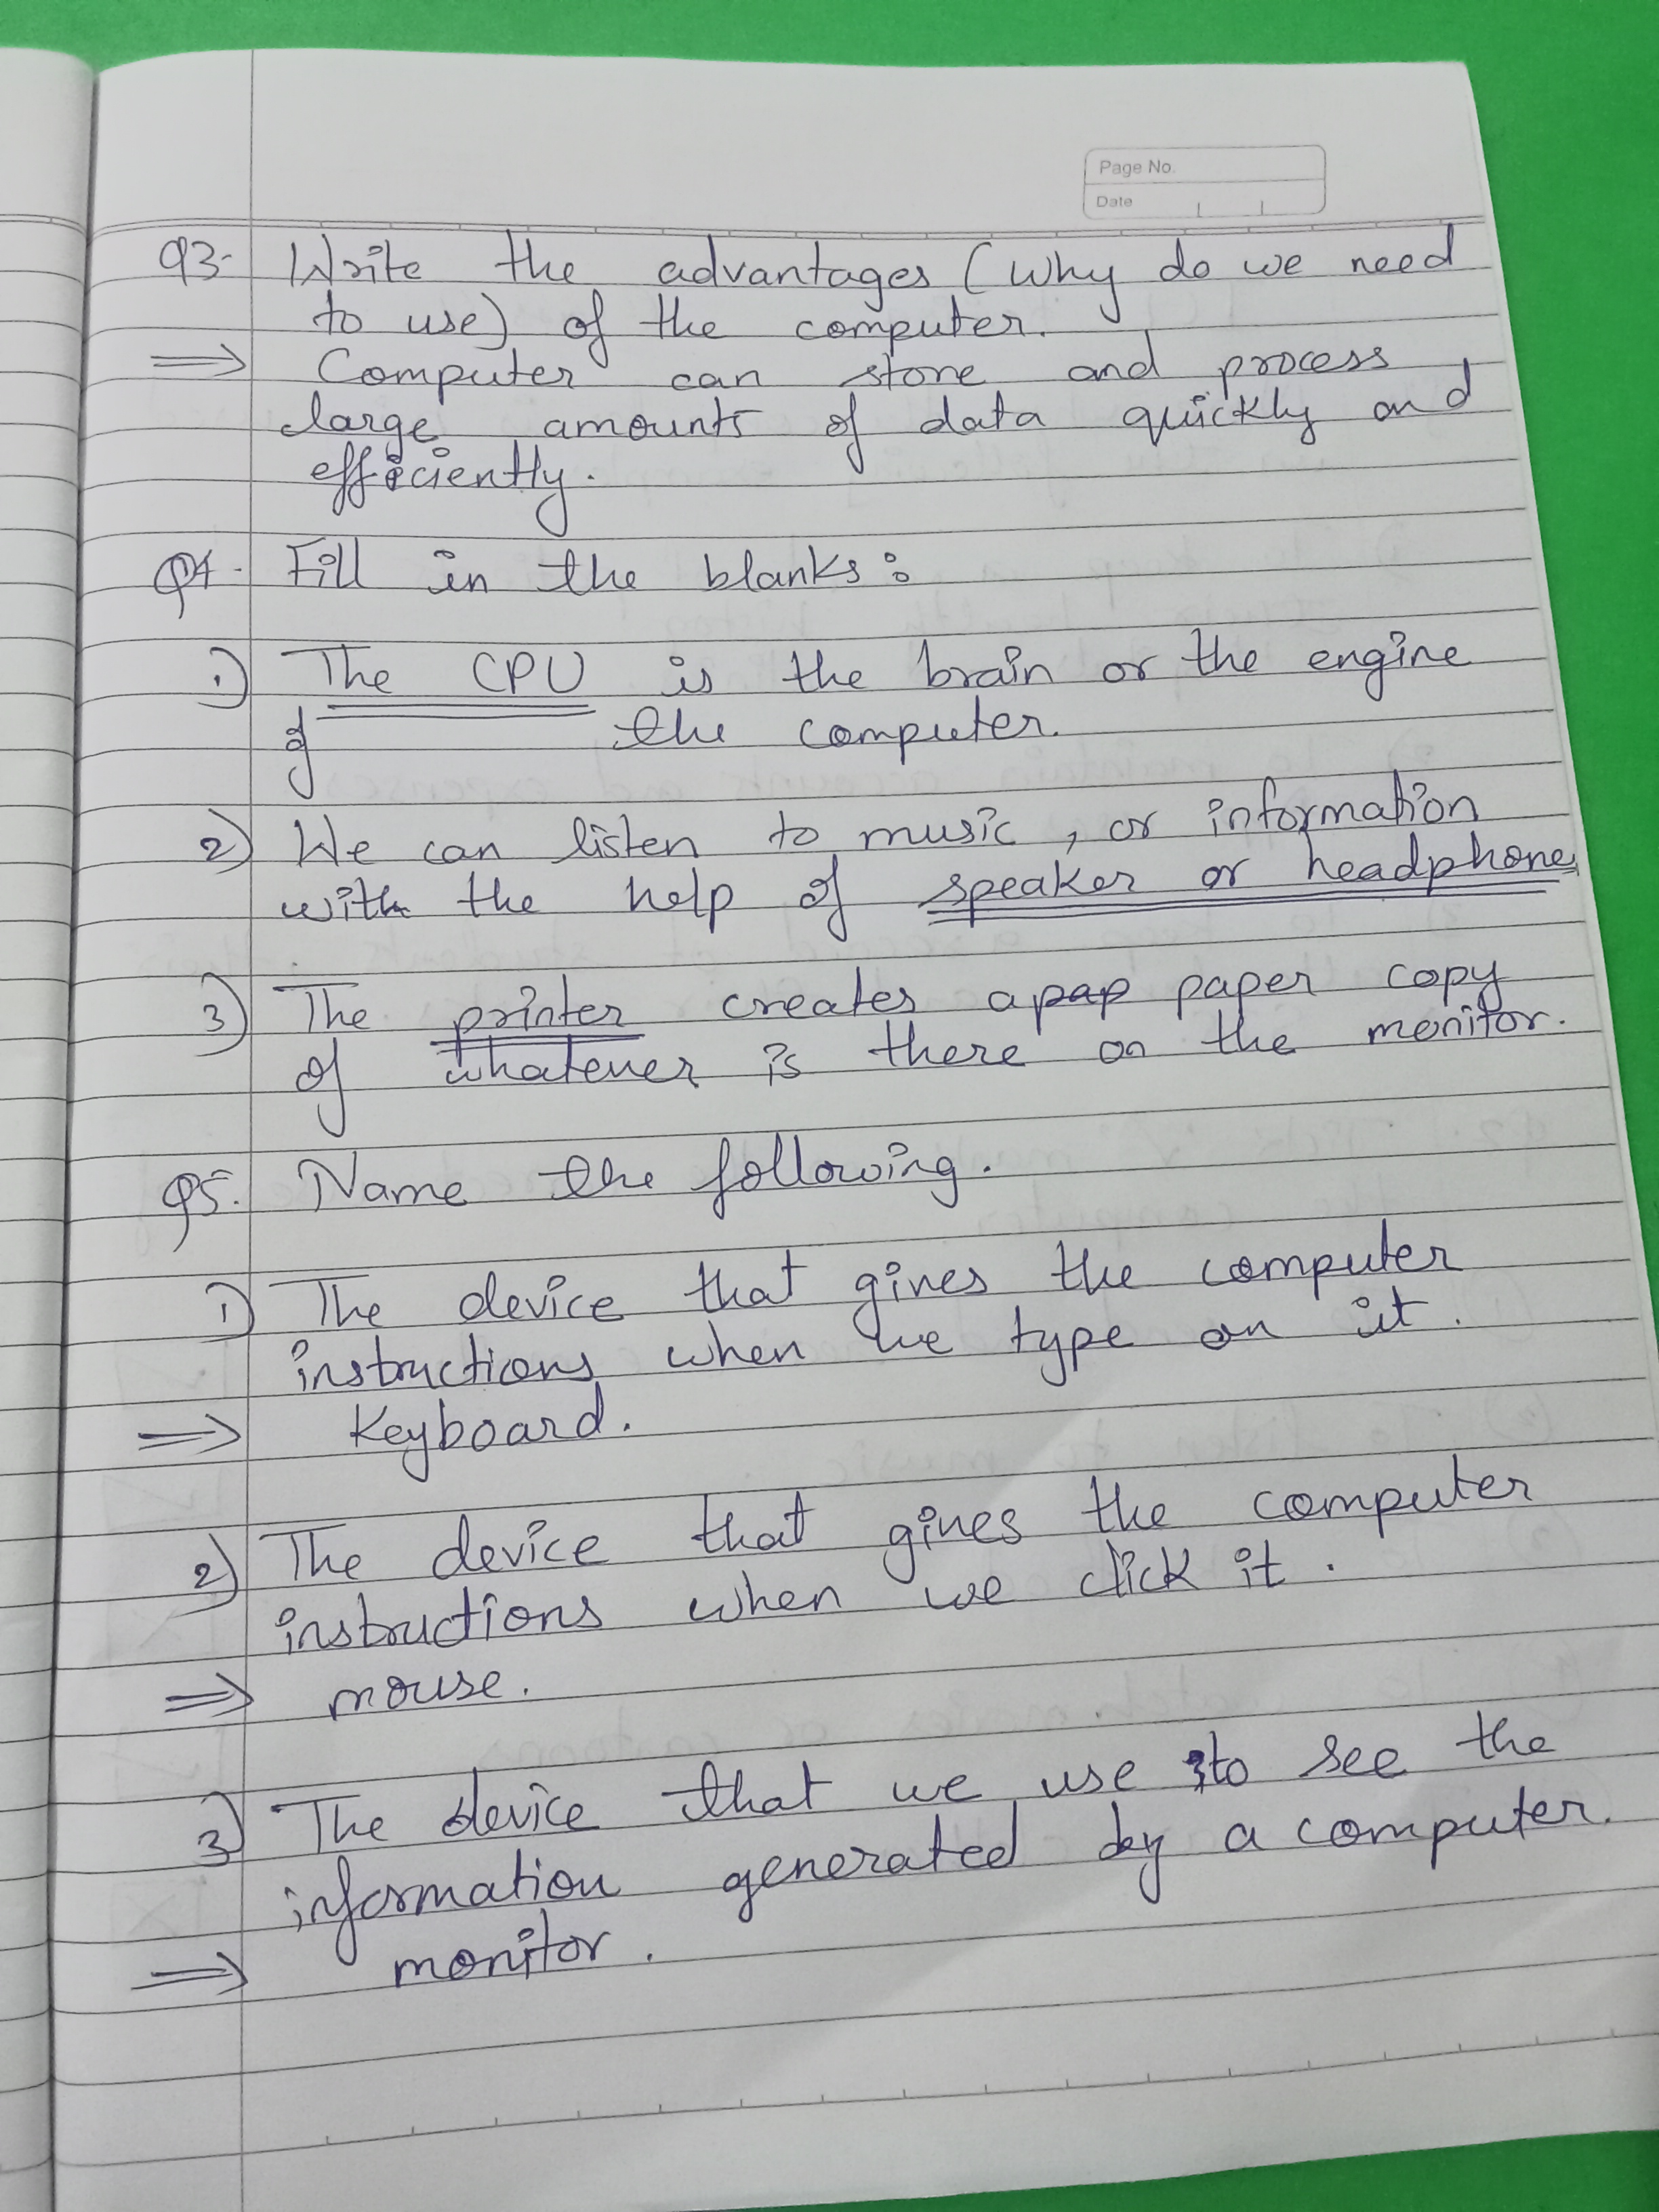 Page No.
Date
Q3- Write the advantages (Why do we need
to use) of the computer.
⇒ Computer can store and process
large amounts of data quickly and
efficiently.
Q4. Fill in the blanks:
1) The CPU is the brain or the engine
of the computer.
2) We can listen to music, or information
with the help of speaker or headphone
3) The printer creates a pap paper copy
of whatever is there on the monitor.
Q5. Name the following.
1) The device that gives the computer
instructions when we type on it.
⇒ Keyboard.
2) The device that gives the computer
instructions when we click it.
⇒ mouse.
3) The device that we use to see the
information generated by a computer.
⇒ monitor.